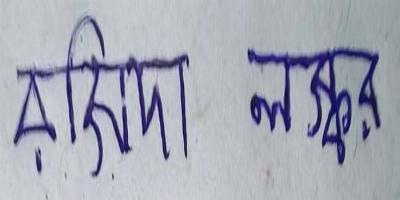 রশিদা লস্কর